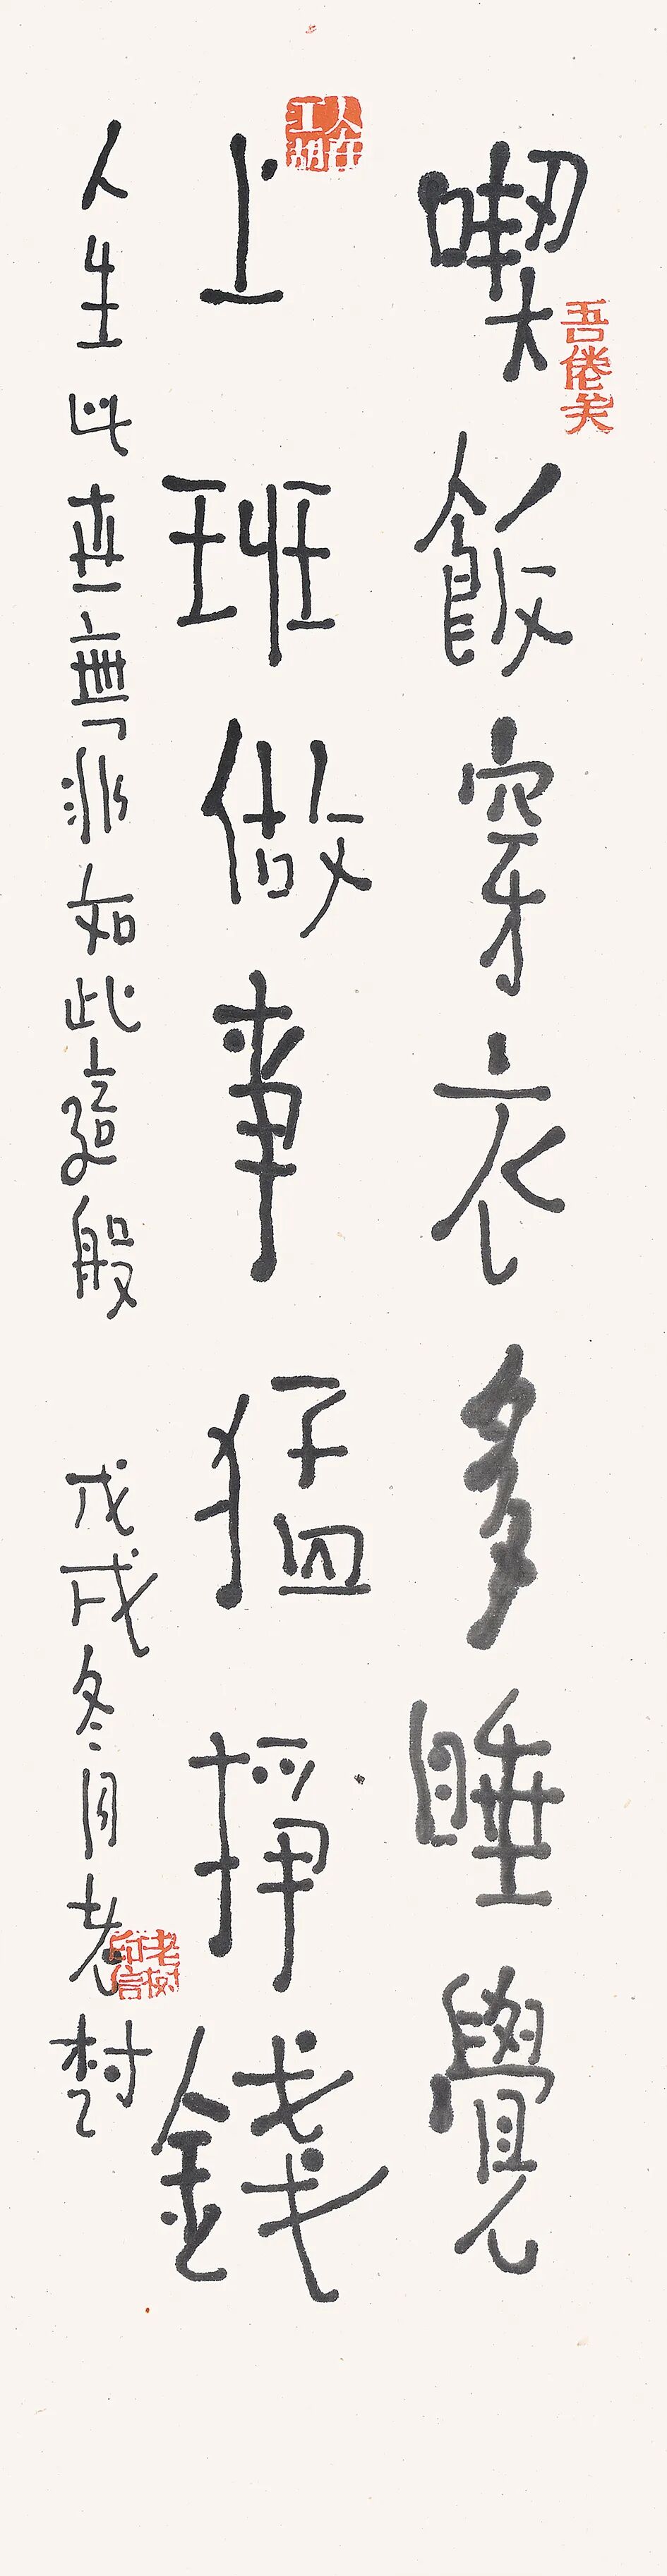 喫飯穿衣多睡覺
吾倦矣
人在江湖
上班做事猛掙錢
人生此世無非如此這般 戊戌冬月老樹
老樹印信